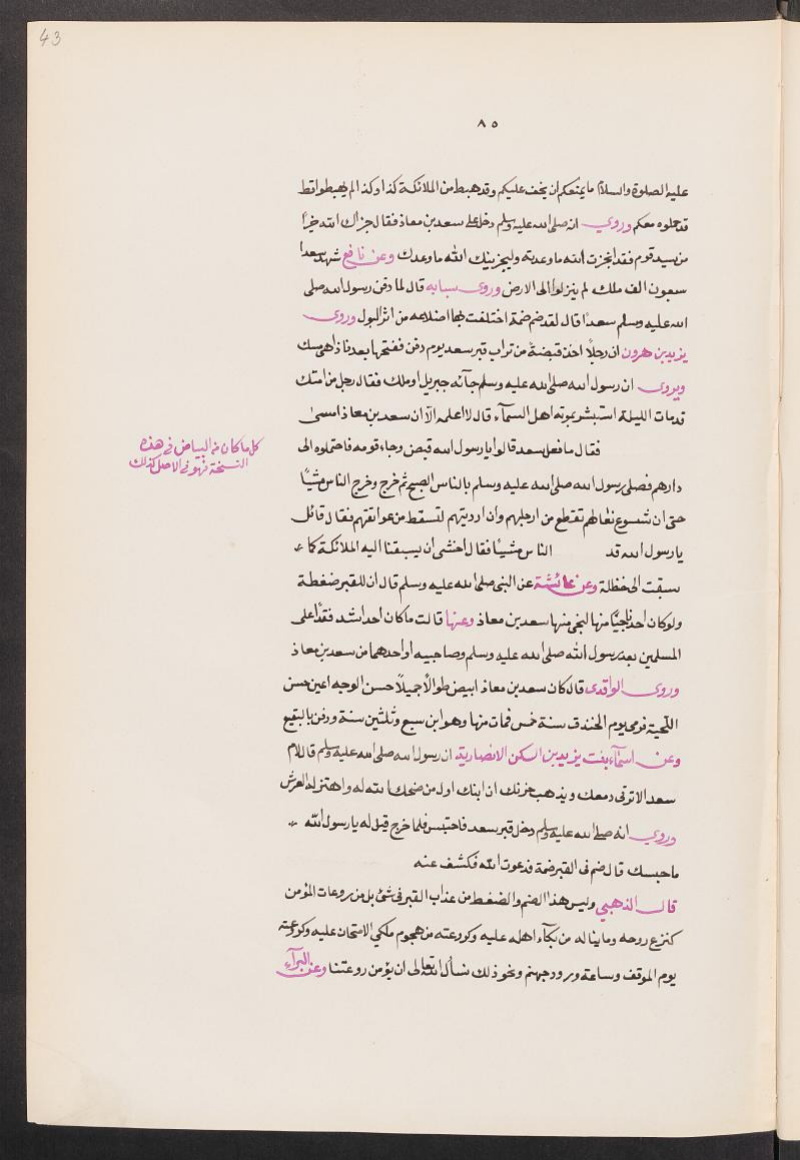 43
٨٥
عليه الصلوة والسلام ما يمنعكم ان يخف عليكم وقد هبط من الملائكة كذا وكذا لم يهبطوا قط
قد حملوه معكم وروي انه صلى الله عليه وسلم دخل على سعد بن معاذ فقال جزاك الله خيرًا
من سيد قوم فقد انجزت الله ما وعدته ولينجزينك الله ما وعدك وعن نافع شهد سعدا
سبعون الف ملك لم ينزلوا الى الارض وروى سبابه قال لما دفن رسول الله صلى
الله عليه وسلم سعدا قال لقد ضم ضمة اختلفت بها اضلاعه من اثر البول وروى
يزيد بن هرون ان رجلًا اخذ قبضة من تراب قبر سعد يوم دفن ففتحها بعد فاذا هي مسك
ويروى ان رسول الله صلى الله عليه وسلم جآئه جبريل او ملك فقال رجل من امتك
قد مات الليلة استبشر بموته اهل السمآء قال لا اعلمه الا ان سعد بن معاذ امسى
فقال ما فعل سعد قالوا يا رسول الله قبض وجاء قومه فاحتملوه الى
دارهم فصلى رسول الله صلى الله عليه وسلم بالناس الصبح ثم خرج وخرج الناس مشيًا
حتى ان شسوع نعالهم تقطع من ارجلهم وان ارديتهم لتسقط من عواتقهم فقال قائل
يا رسول الله قد الناس مشيًا فقال اخشى ان يسبقنا اليه الملائكة كما
سبقت الى حنظلة وعن عائشة عن النبى صلى الله عليه وسلم قال ان للقبر ضغطة
ولو كان احد ناجيًا منها لنجى منها سعد بن معاذ وعنها قالت ما كان احد اشد فقدًا على
المسلمين بعد رسول الله صلى الله عليه وسلم وصاحبيه او احدهما من سعد بن معاذ
وروى الواقدى قال كان سعد بن معاذ ابيض طوالًا جميلًا حسن الوجه اعين حسن
اللحية فرمى يوم الخندق سنة خمس فمات منها وهو ابن سبع وثلثين سنة ودفن بالبقيع
وعن اسمآء بنت يزيد بن السكن الانصارية ان رسول الله صلى الله عليه وسلم قال لام
سعد الا ترقى دمعك ويذهب حزنك ان ابنك اول من ضحك الله له واهتز له العرش
وروي انه صلى الله عليه وسلم دخل قبر سعد فاحتبس فلما خرج قيل له يا رسول الله
ما حبسك قال ضم فى القبر ضمة فدعوت الله فكشف عنه
قال الذهبي وليس هذا الضم والضغط من عذاب القبر فى شئ بل من روعات المؤمن
كنزع روحه وما يناله من بكآء اهله عليه وكروعته من هجوم ملكي الامتحان عليه وكروعته
يوم الموقف وساعته وورود جهنم ونحو ذلك نسأل الله تعالى ان يؤمن روعتنا وعن البرآء
كل ما كان من البياض فى هذه
النسخة فهو فى الاصل كذلك